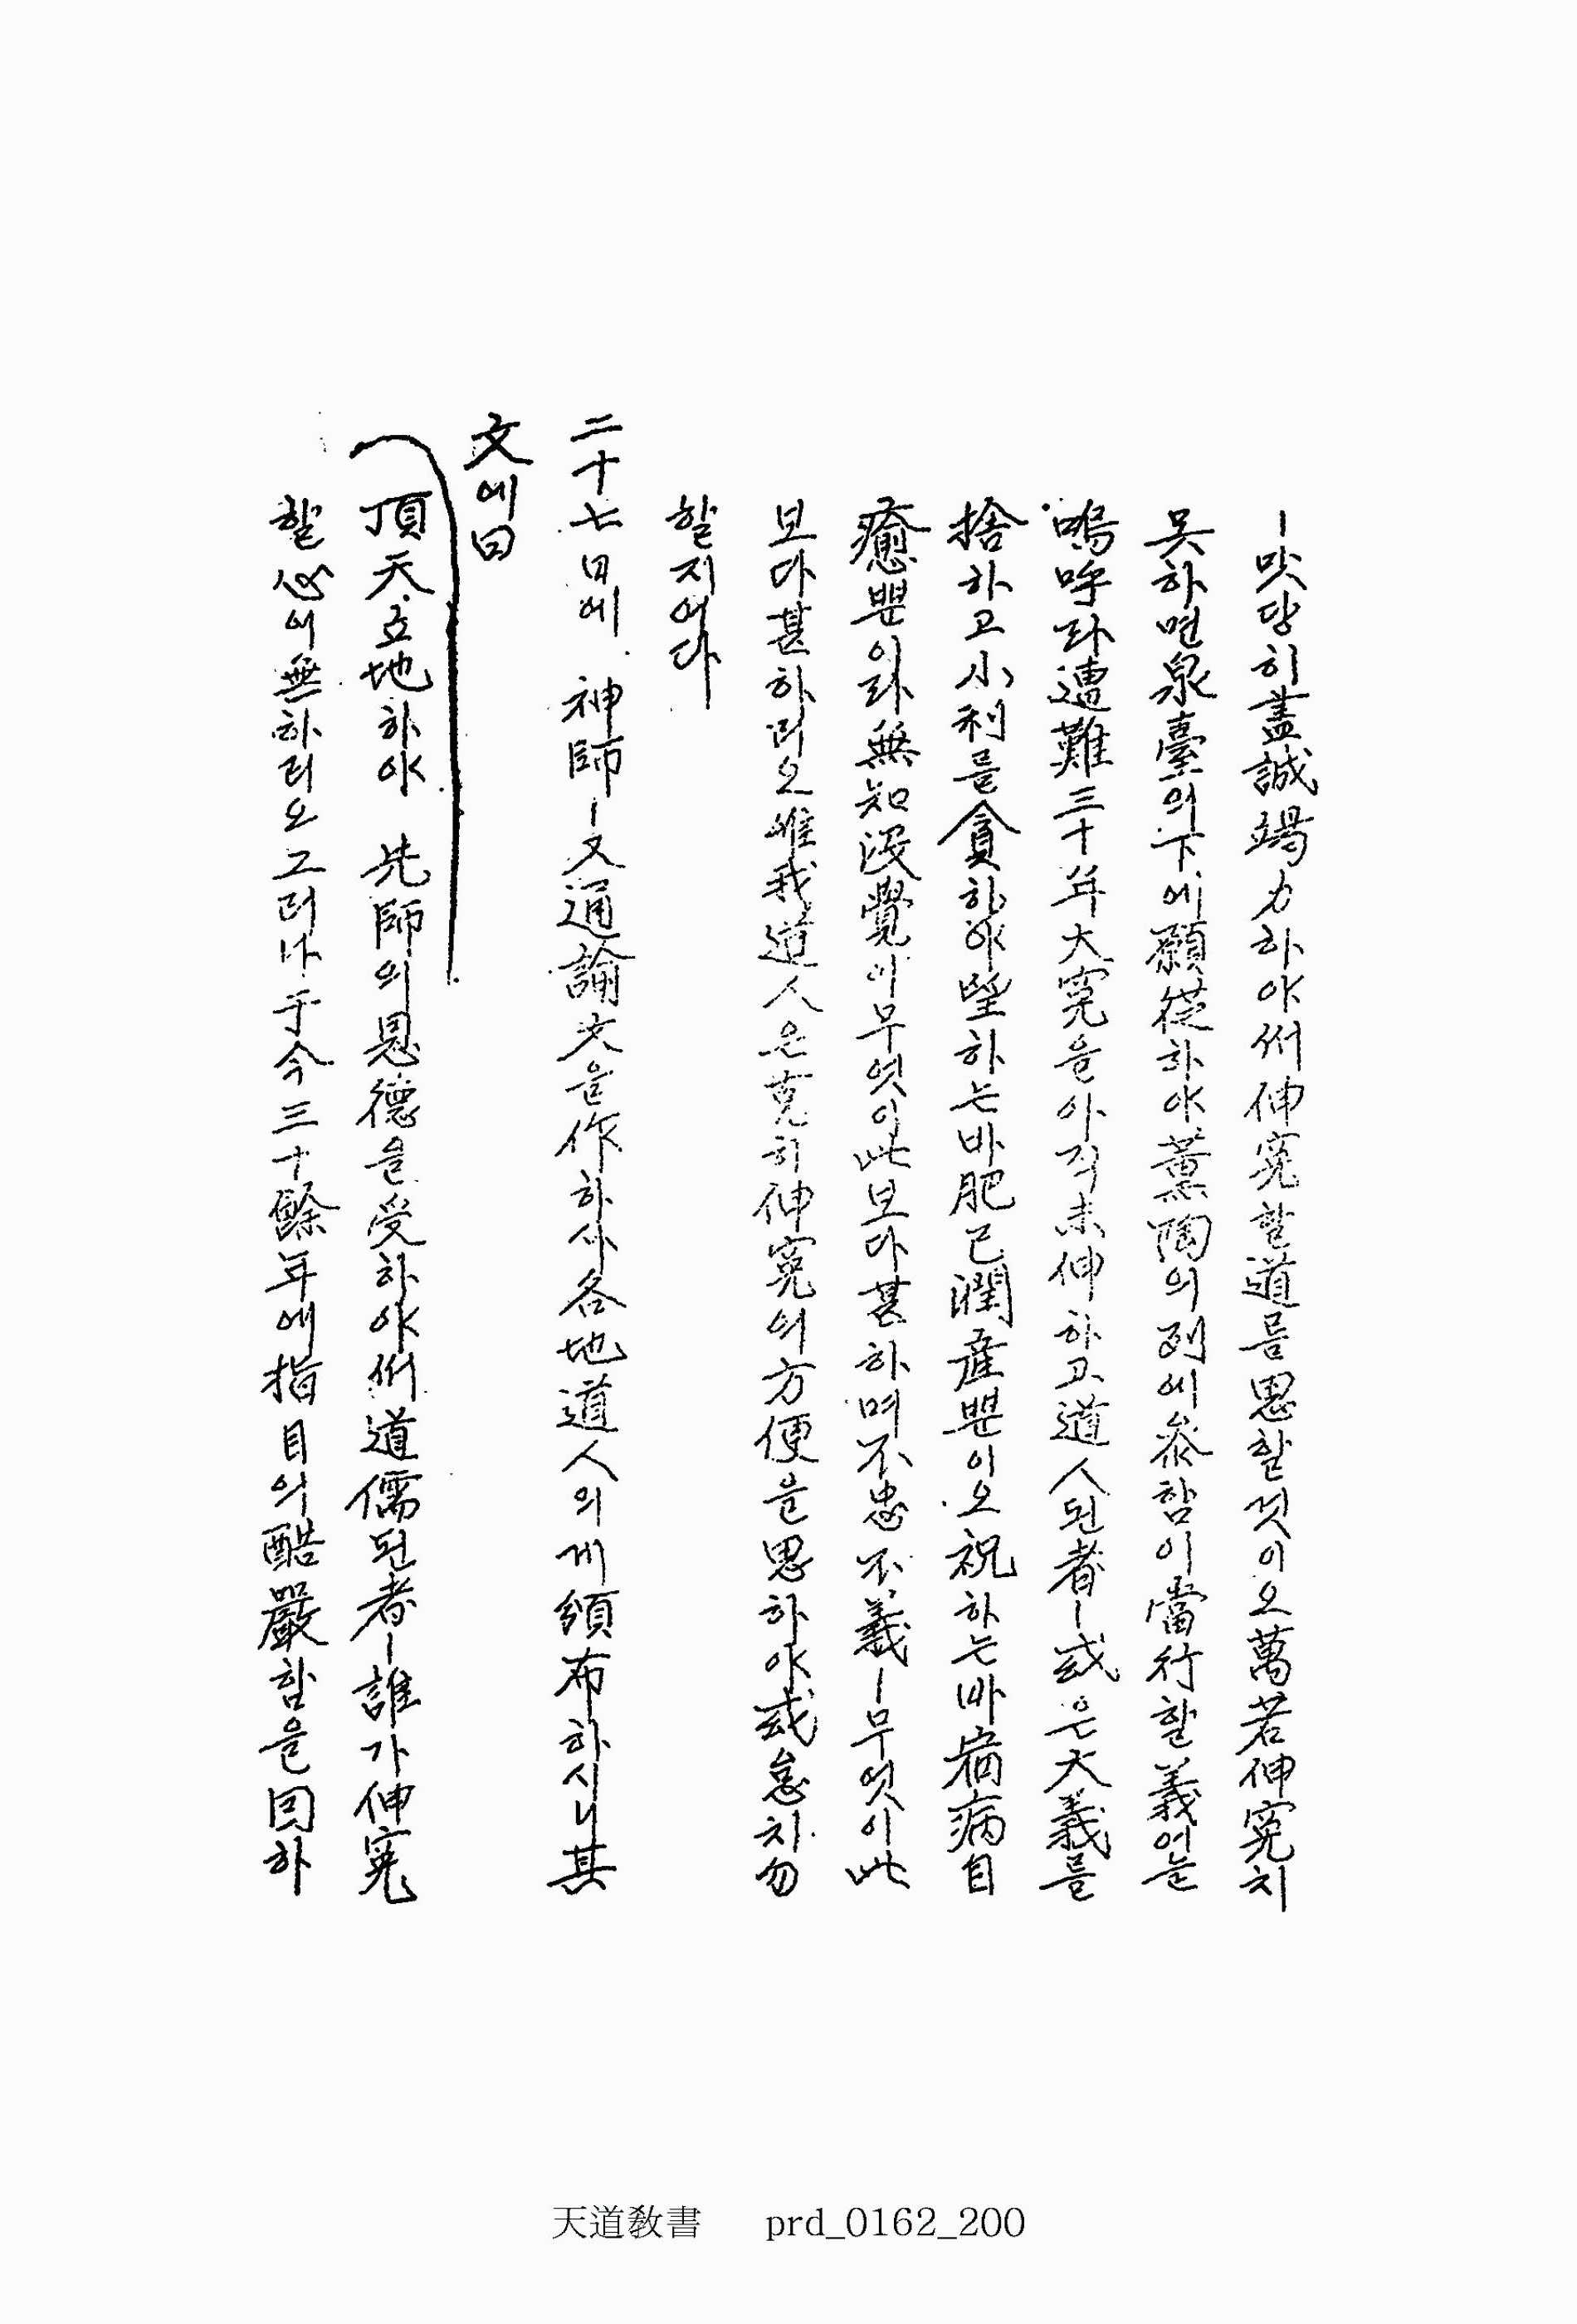 ㅣ맛당히盡誠竭力하야써伸寃할道를思할것이오萬若伸寃치
못하면泉臺의下에願從하야薰陶의列에參함이當行할義어늘
嗚呼라遭難三十年大寃을아직未伸하고道人된者ㅣ或은大義를
捨하고小利를貪하야望하는바肥己潤産뿐이오祝하는바病自
癒뿐이라無知沒覺이무엇이此보다甚하며不忠不義ㅣ무엇이此
보다甚하리오唯我道人은克히伸寃의方便을思하야或怠치勿
할지어다
二十七日에 神師ㅣ又通諭文을作하사各地道人의게頒布하시니其
文에曰
頂天立地하야 先師의恩德을受하야써道儒된者ㅣ誰가伸寃
할心이無하리오그러나于今三十餘年에指目의酷嚴함을因하
天道敎書 prd_0162_200